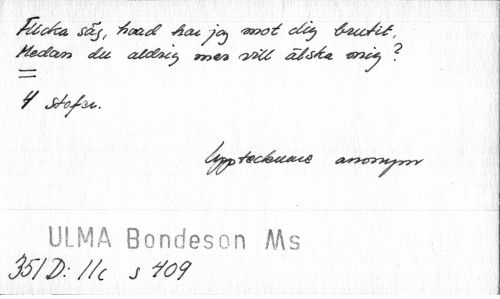 Flicka säg, hvad har jag mot dig brutit,
Medan du aldrig mer vill älska mig?
4 strofer.
Upptecknare anonym
ULMA Bondeson Ms
351 D: 11c s 409